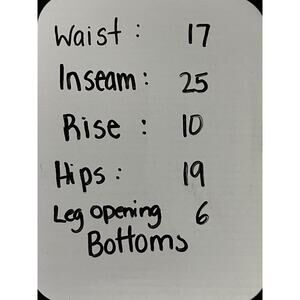 Waist : 17
Inseam : 25
Rise : 10
Hips : 19
Leg opening 6
Bottoms